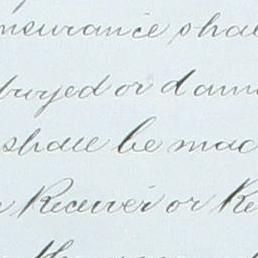 insurance shall
royed or dam
shall be mad
Receiver or Re